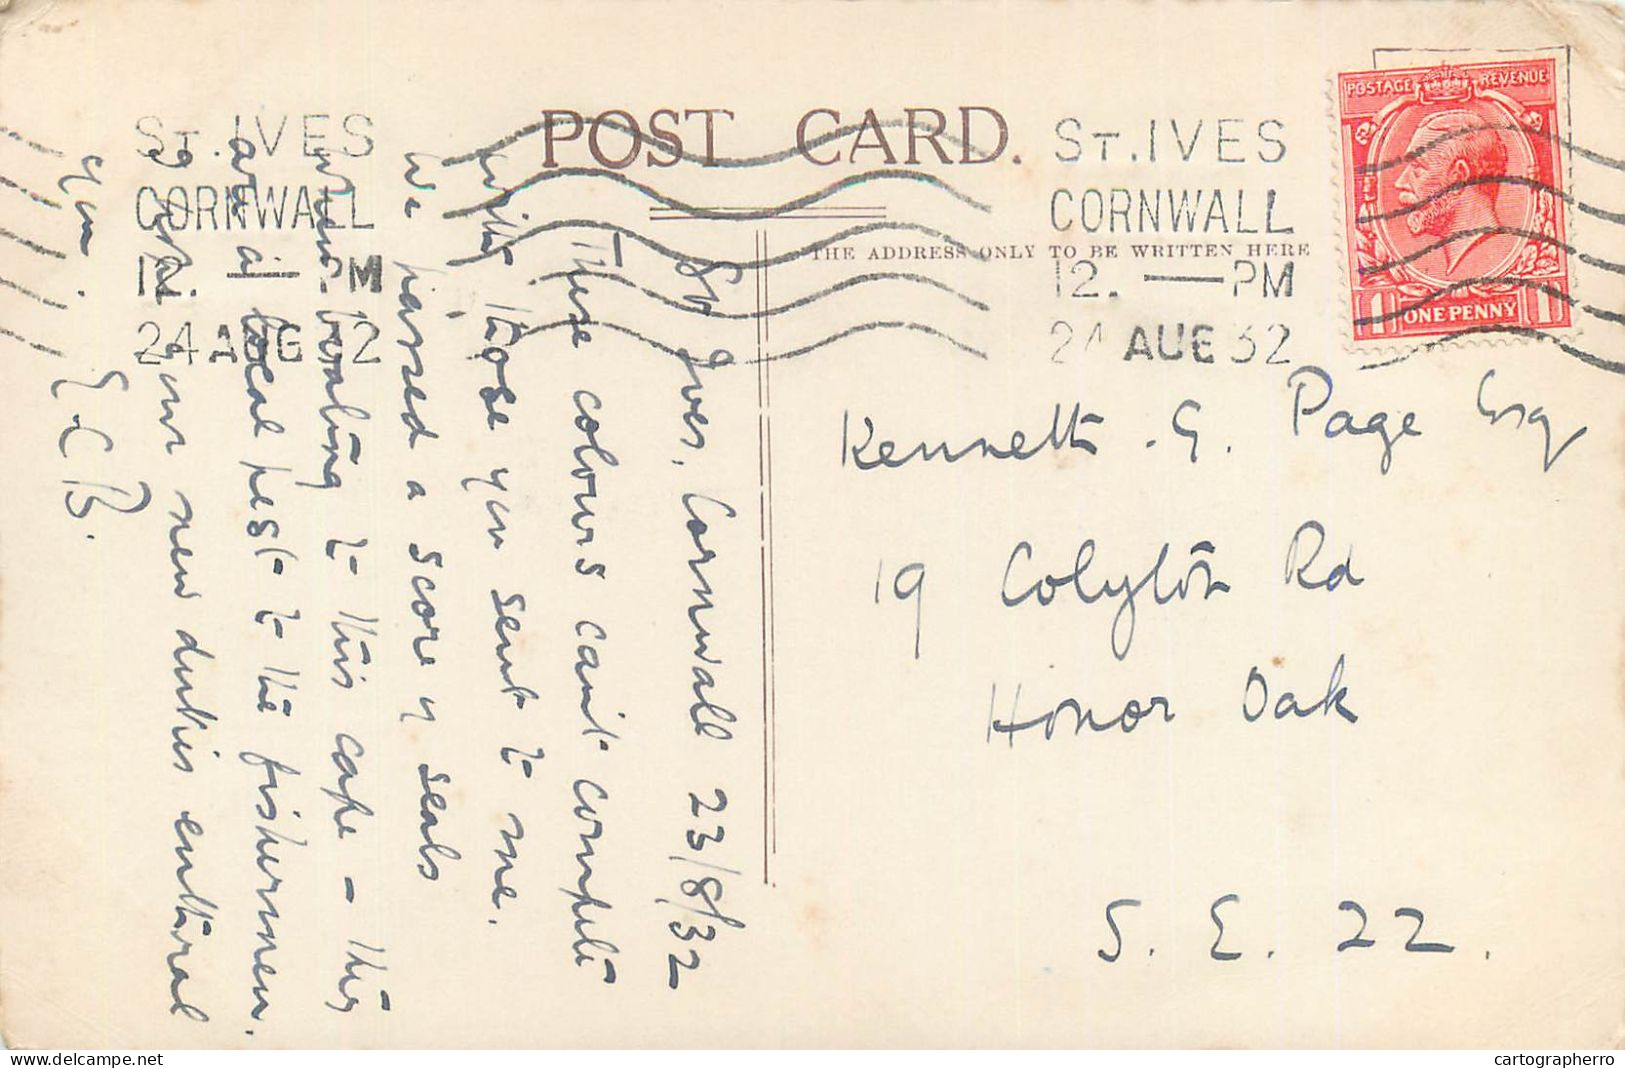 POST CARD.
THE ADDRESS ONLY TO BE WRITTEN HERE
ST. IVES
CORNWALL
12. — PM
24 AUG 32
ST. IVES
CORNWALL
12. — PM
24 AUG 32
POSTAGE REVENUE
1 ONE PENNY 1
St Ives, Cornwall 23/8/32
These colours can't compete
with those you sent to me.
We passed a score of seals
when boating to this cape – they
are a local pest to the fishermen.
your new duties
Yrs. E.C.B.
Kenneth . G. Page Esq
19 Colyton Rd
Honor Oak
S. E. 22.
delcampe.net
cartographerro